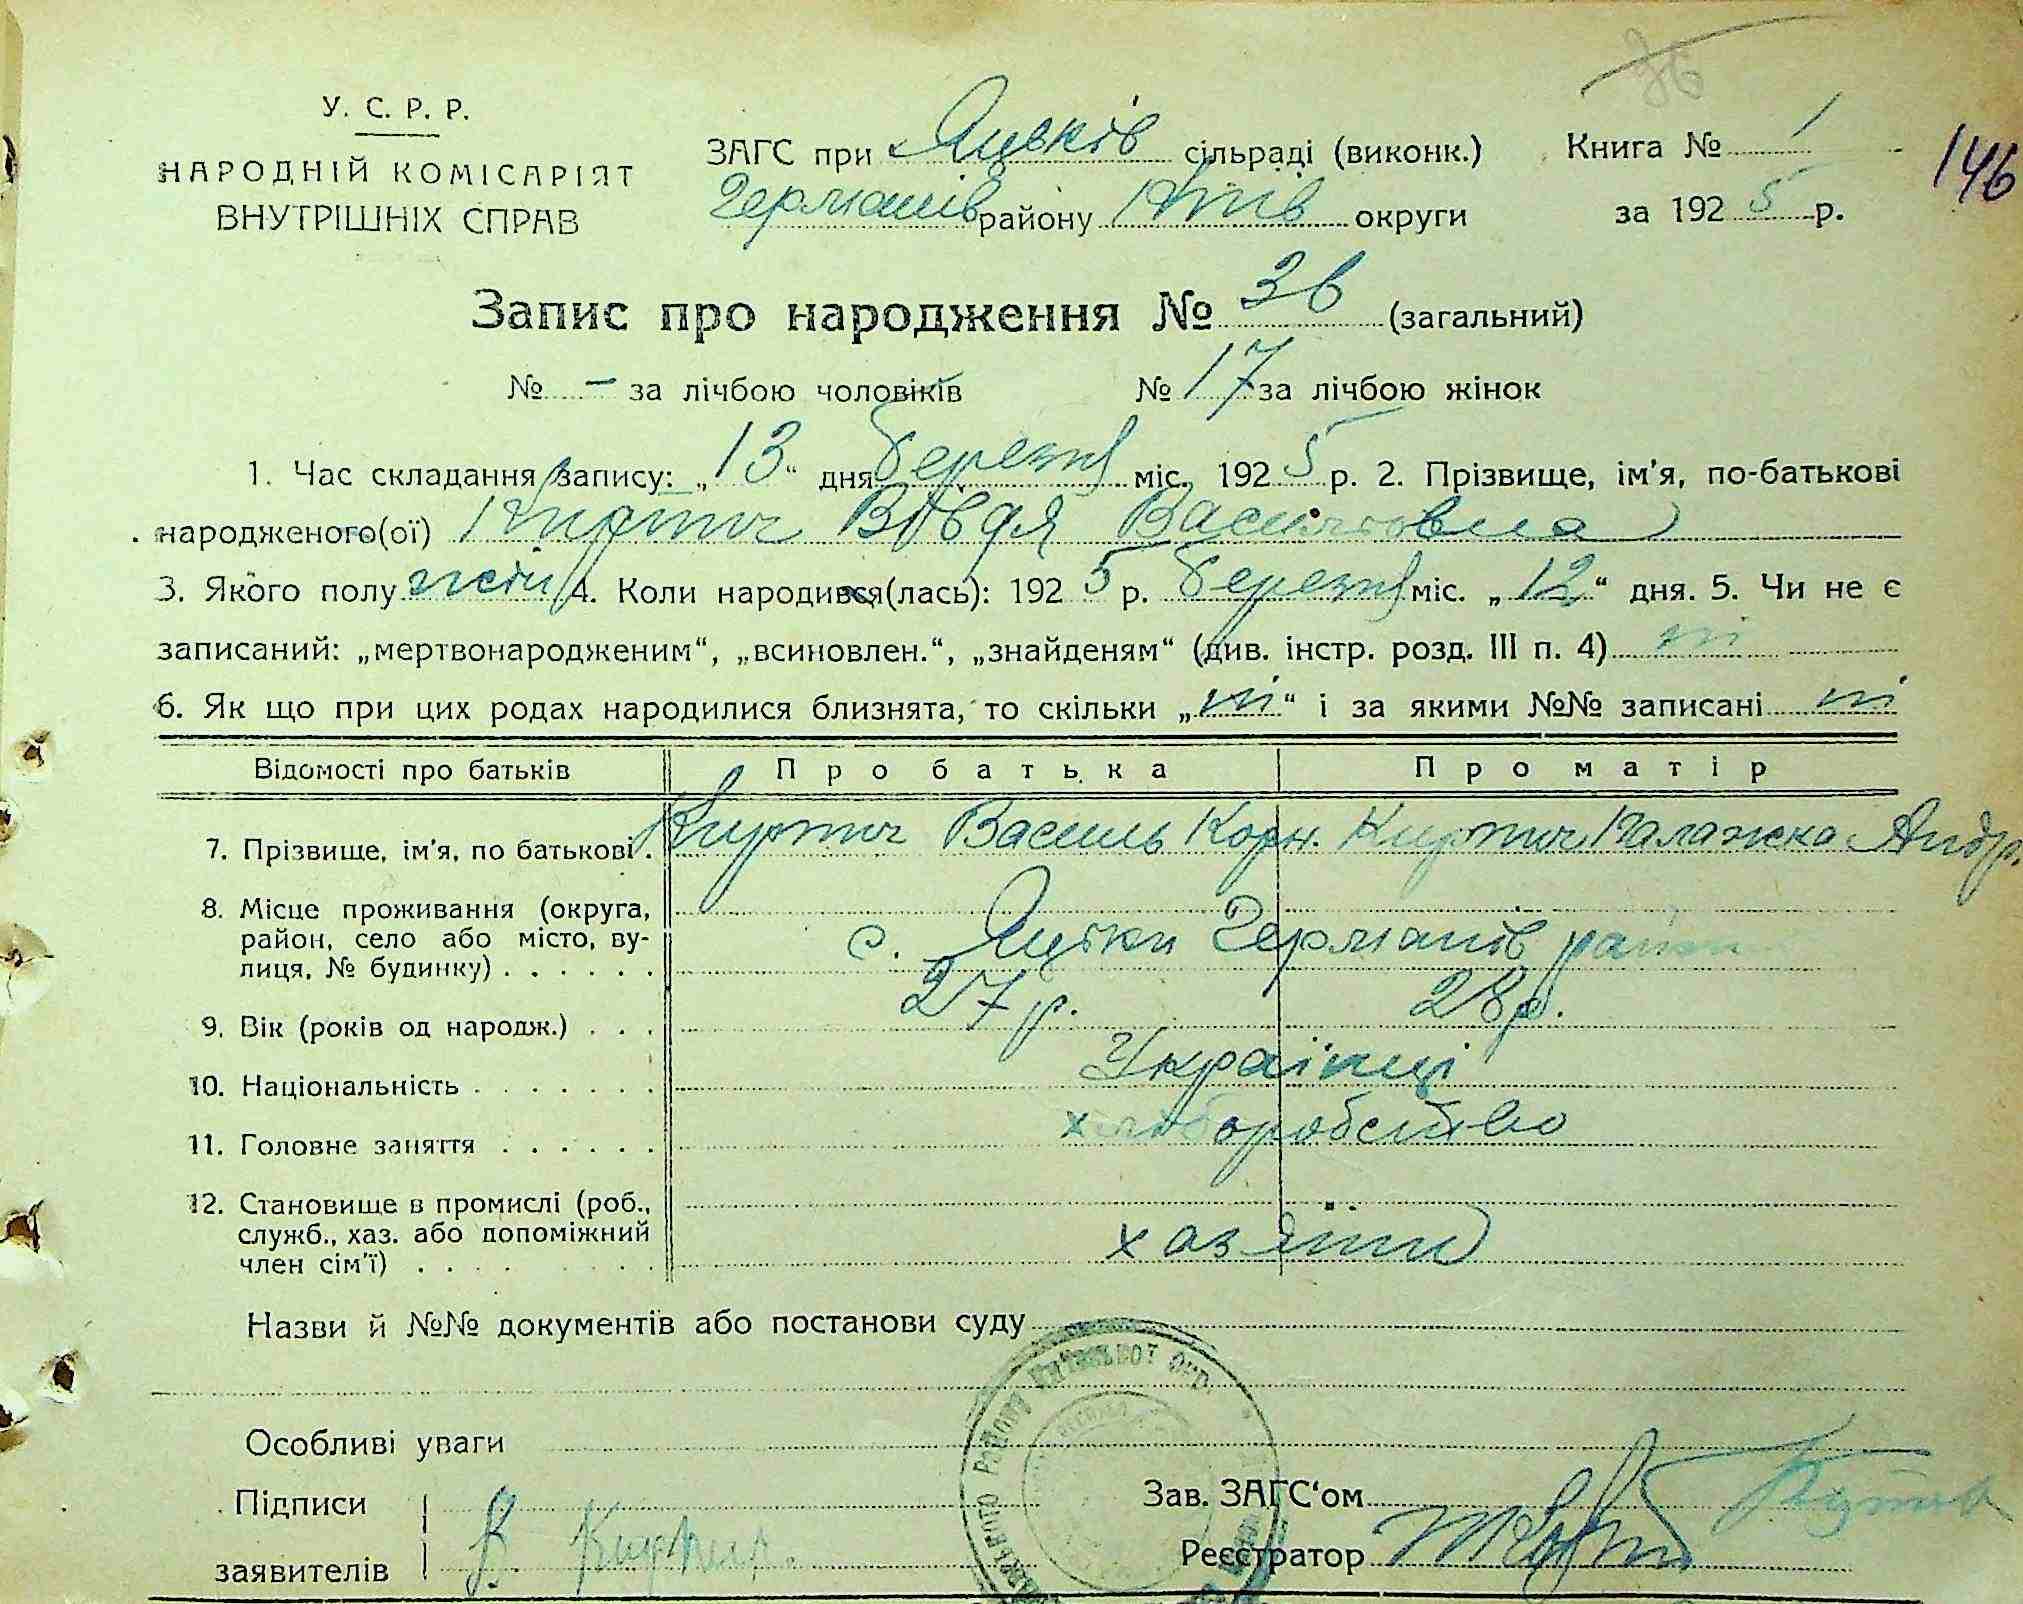 У. С. Р. Р.
НАРОДНІЙ КОМІСАРІЯТ
ВНУТРІШНІХ СПРАВ
ЗАГС при Яцьків сільраді (виконк.)
Германів району Київ округи
Книга № 1
за 1925 р.
146
Запис про народження № 36 (загальний)
№ — за лічбою чоловіків № 17 за лічбою жінок
1. Час складання запису: „13“ дня березня міс. 1925 р. 2. Прізвище, ім'я, по-батькові
народженого(ої) Кирпич Вовдя Василівна
3. Якого полу жін. 4. Коли народився(лась): 1925 р. березня міс. „12“ дня. 5. Чи не є
записаний: „мертвонародженим“, „всиновлен.“, „знайденям“ (див. інстр. розд. III п. 4) ні
6. Як що при цих родах народилися близнята, то скільки „ні“ і за якими №№ записані ні
Відомості про батьків Про батька Про матір
7. Прізвище, ім'я, по батькові . Кирпич Василь Корн. Кирпич Палажка Андр.
8. Місце проживання (округа,
район, село або місто, ву-
лиця, № будинку) . . . . . . с. Яцьки Германів район
9. Вік (років од народж.) . . . 27 р. 28 р.
10. Національність . . . . . . . Українці
11. Головне заняття . . . . . . хліборобство
12. Становище в промислі (роб.,
служб., хаз. або допоміжний
член сім'ї) . . . . . . . . хазяїни
Назви й №№ документів або постанови суду
Особливі уваги
Підписи
заявителів В. Кирпич.
Зав. ЗАГС'ом
Реєстратор